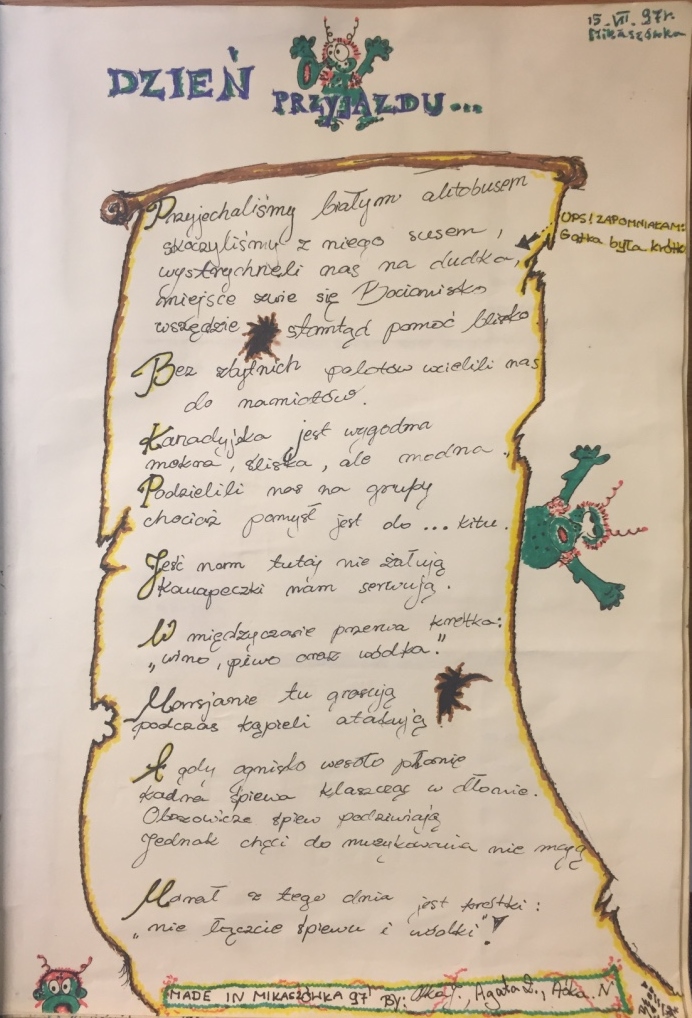 15.VII.97r.
Mikaszówka
DZIEŃ PRZYJAZDU...
Przyjechaliśmy białym autobusem
skoczyliśmy z niego susem,
wystrychnęli nas na dudka,
UPS! ZAPOMNIAŁAM:
Gatka była krótka
miejsce zwie się Bocianisko
wszędzie stamtąd pomoć blisko
Bez zbytnich polotów wcielili nas
do namiotów.
Kanadyjka jest wygodna
mokra, śliska, ale modna.
Podzielili nas na grupy
chociaż pomysł jest do... kitu.
Jeść nam tutaj nie żałują
Kanapeczki nam serwują.
W międzyczasie przerwa krótka:
"wino, piwo oraz wódka."
Marsjanie tu grasują
podczas kąpieli atakują.
A gdy ognisko wesoło płonie
kadra śpiewa klaszcząc w dłonie.
Obozowicze śpiew podziwiają
Jednak chęci do muzykowania nie mają
Morał z tego dnia jest krótki:
"nie łączcie śpiewu i wódki"!
MADE IN MIKASZÓWKA 97' BY: Agata Z., Aśka. N